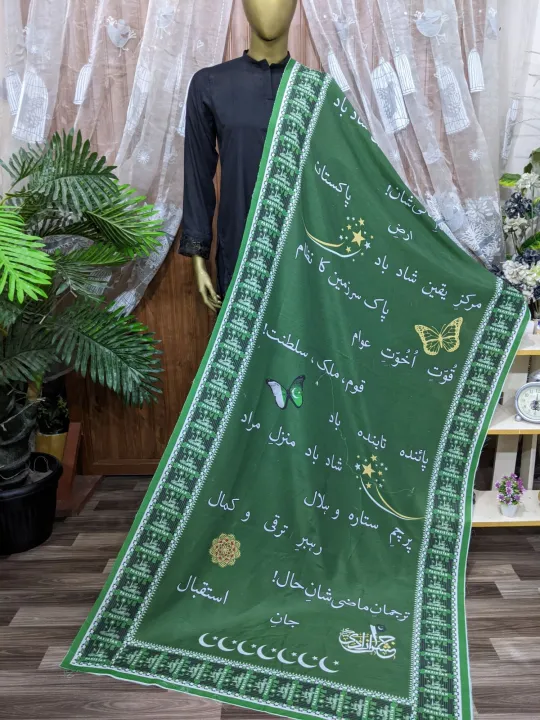 شاد باد
شان!
ارضِ پاکستان
مرکزِ یقین شاد باد
پاک سرزمین کا نظام
قوّتِ اُخوّتِ عوام
قوم، ملک، سلطنت!
پائندہ تابندہ باد
شاد باد منزلِ مراد
پرچمِ ستارہ و ہلال
رہبرِ ترقی و کمال
ترجمانِ ماضی شانِ حال!
جانِ استقبال
جشن آزادی